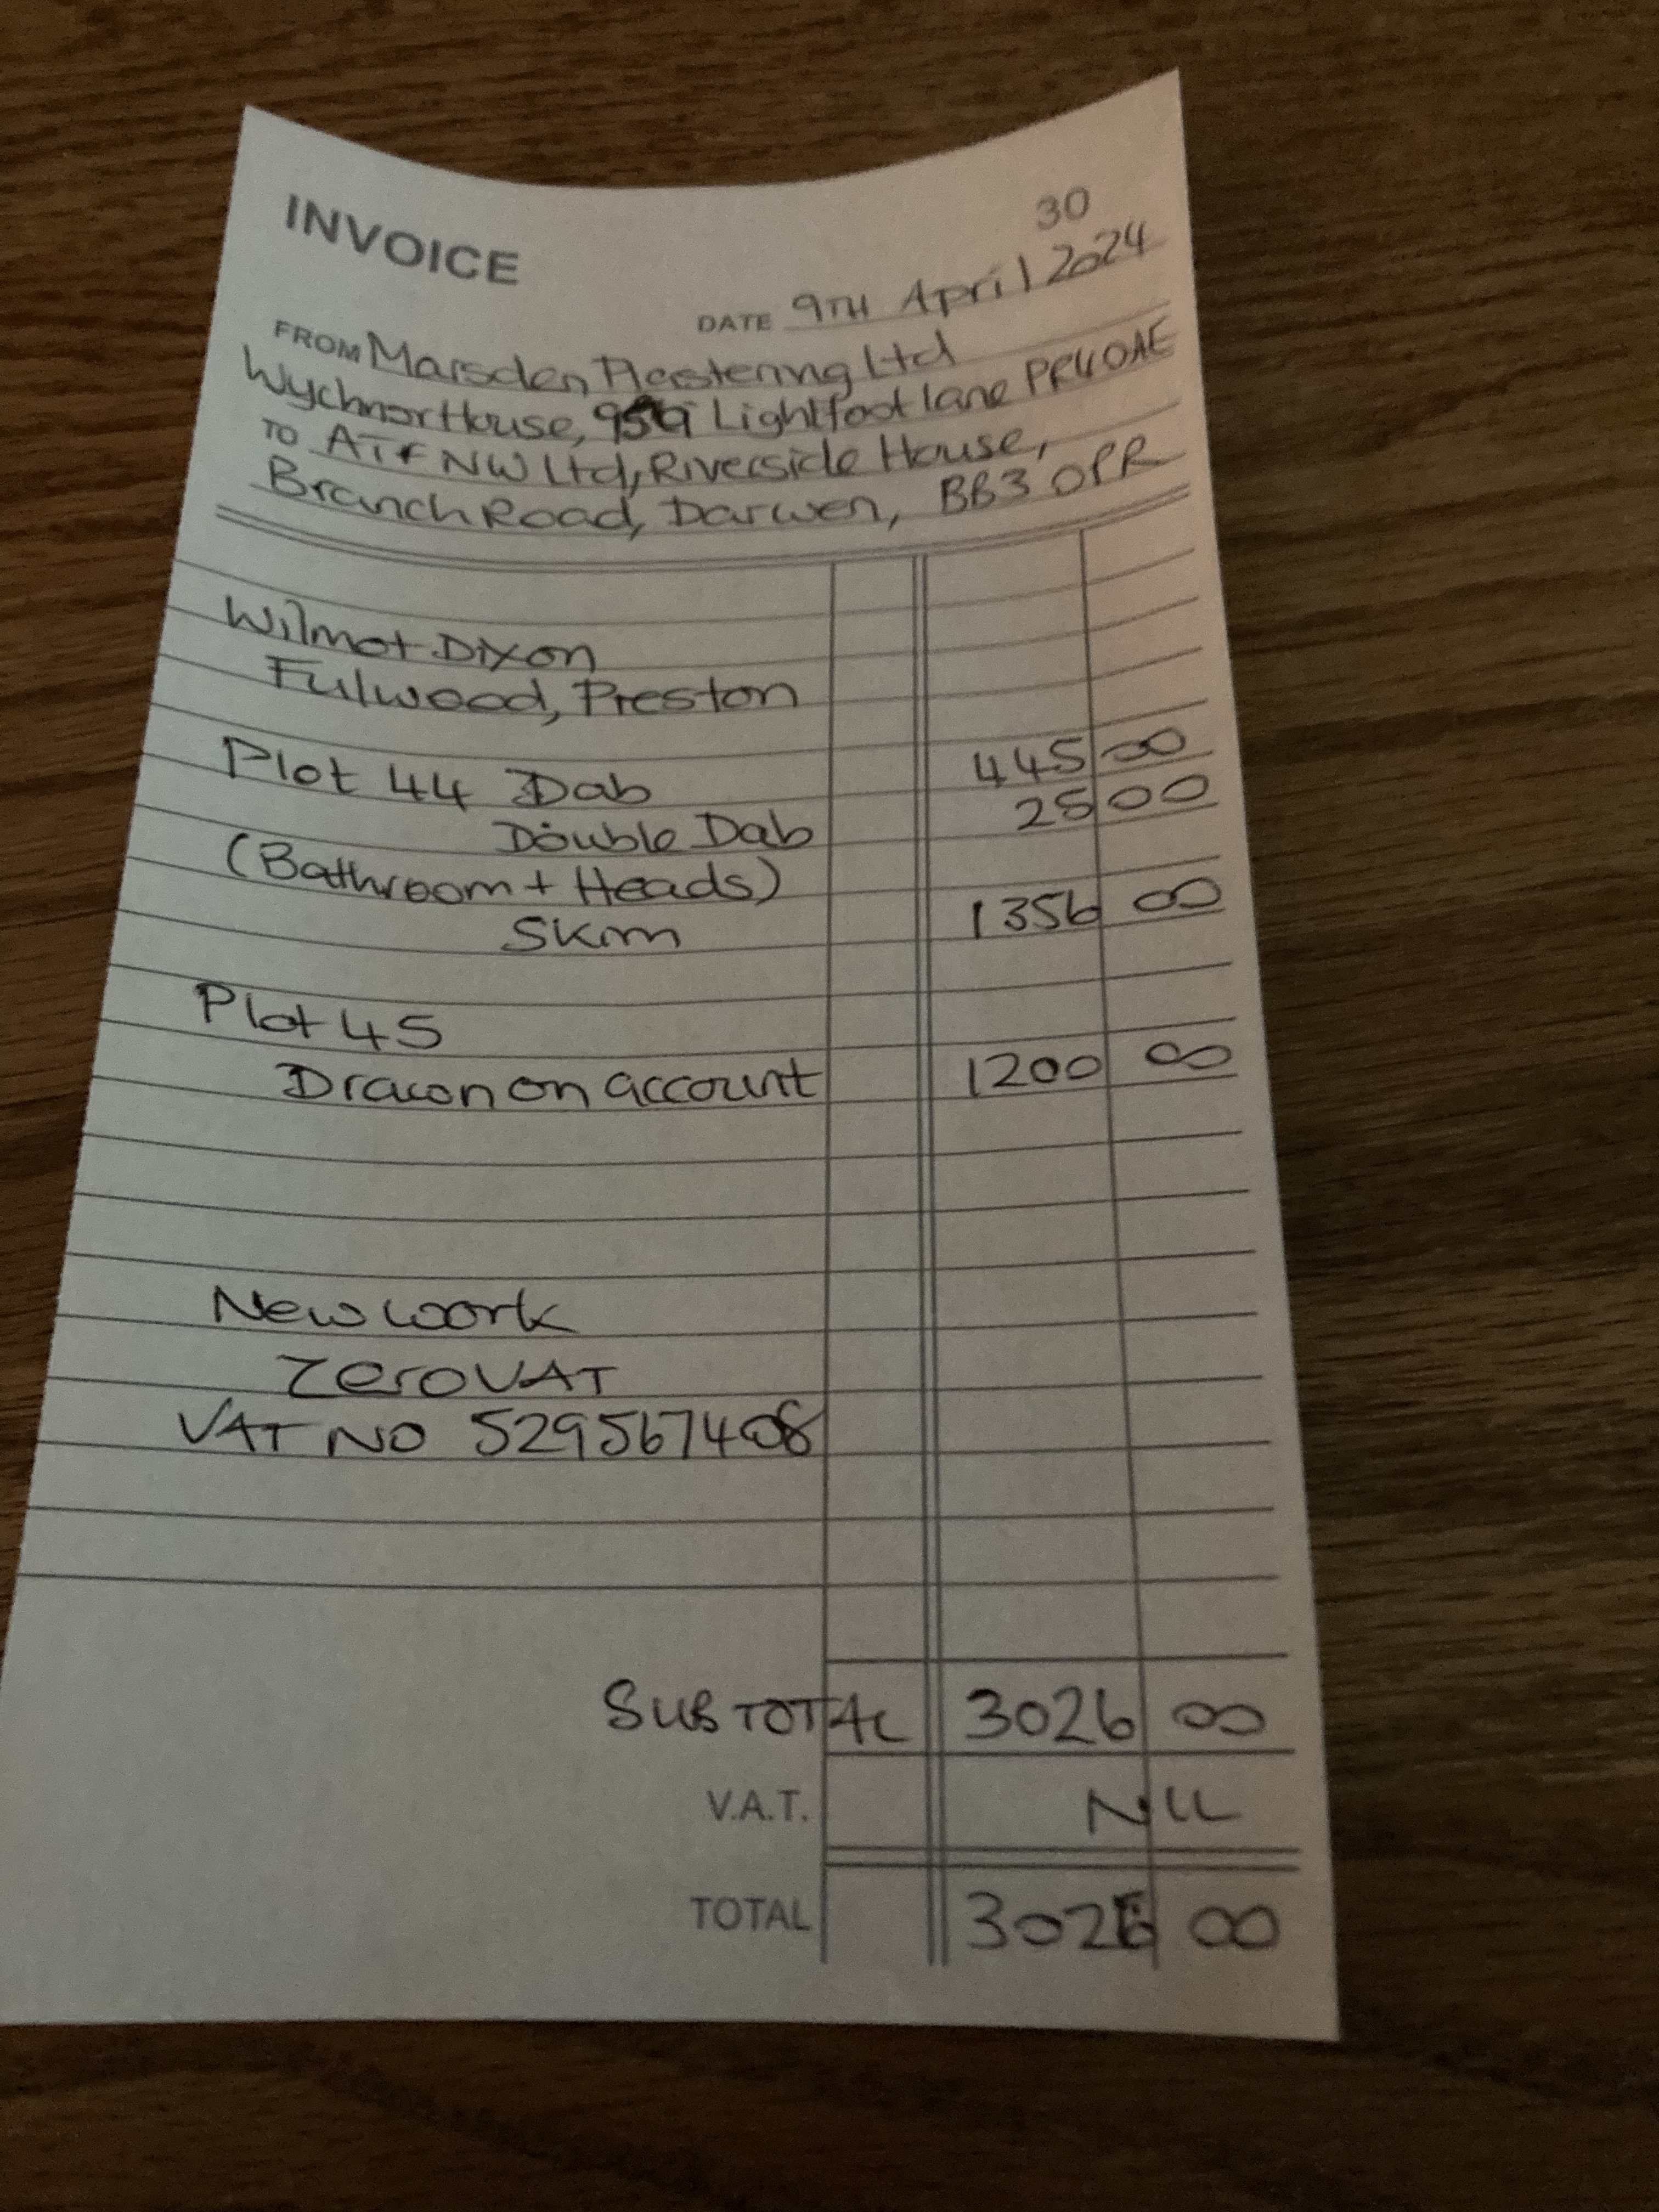 INVOICE
30
DATE 9TH April 2024
FROM Marsden Plastering Ltd
Wychnor House, 959 Lightfoot lane PR4 0AE
TO ATF NW Ltd, Riverside House,
Branch Road, Darwen, BB3 0PR
Wilmot Dixon
Fulwood, Preston
Plot 44 Dab 445 00
Double Dab 25 00
(Bathroom + Heads)
Skim 1356 00
Plot 45
Drawn on account 1200 00
New work
Zero VAT
VAT NO 529567408
SUB TOTAL 3026 00
V.A.T. NIL
TOTAL 3026 00